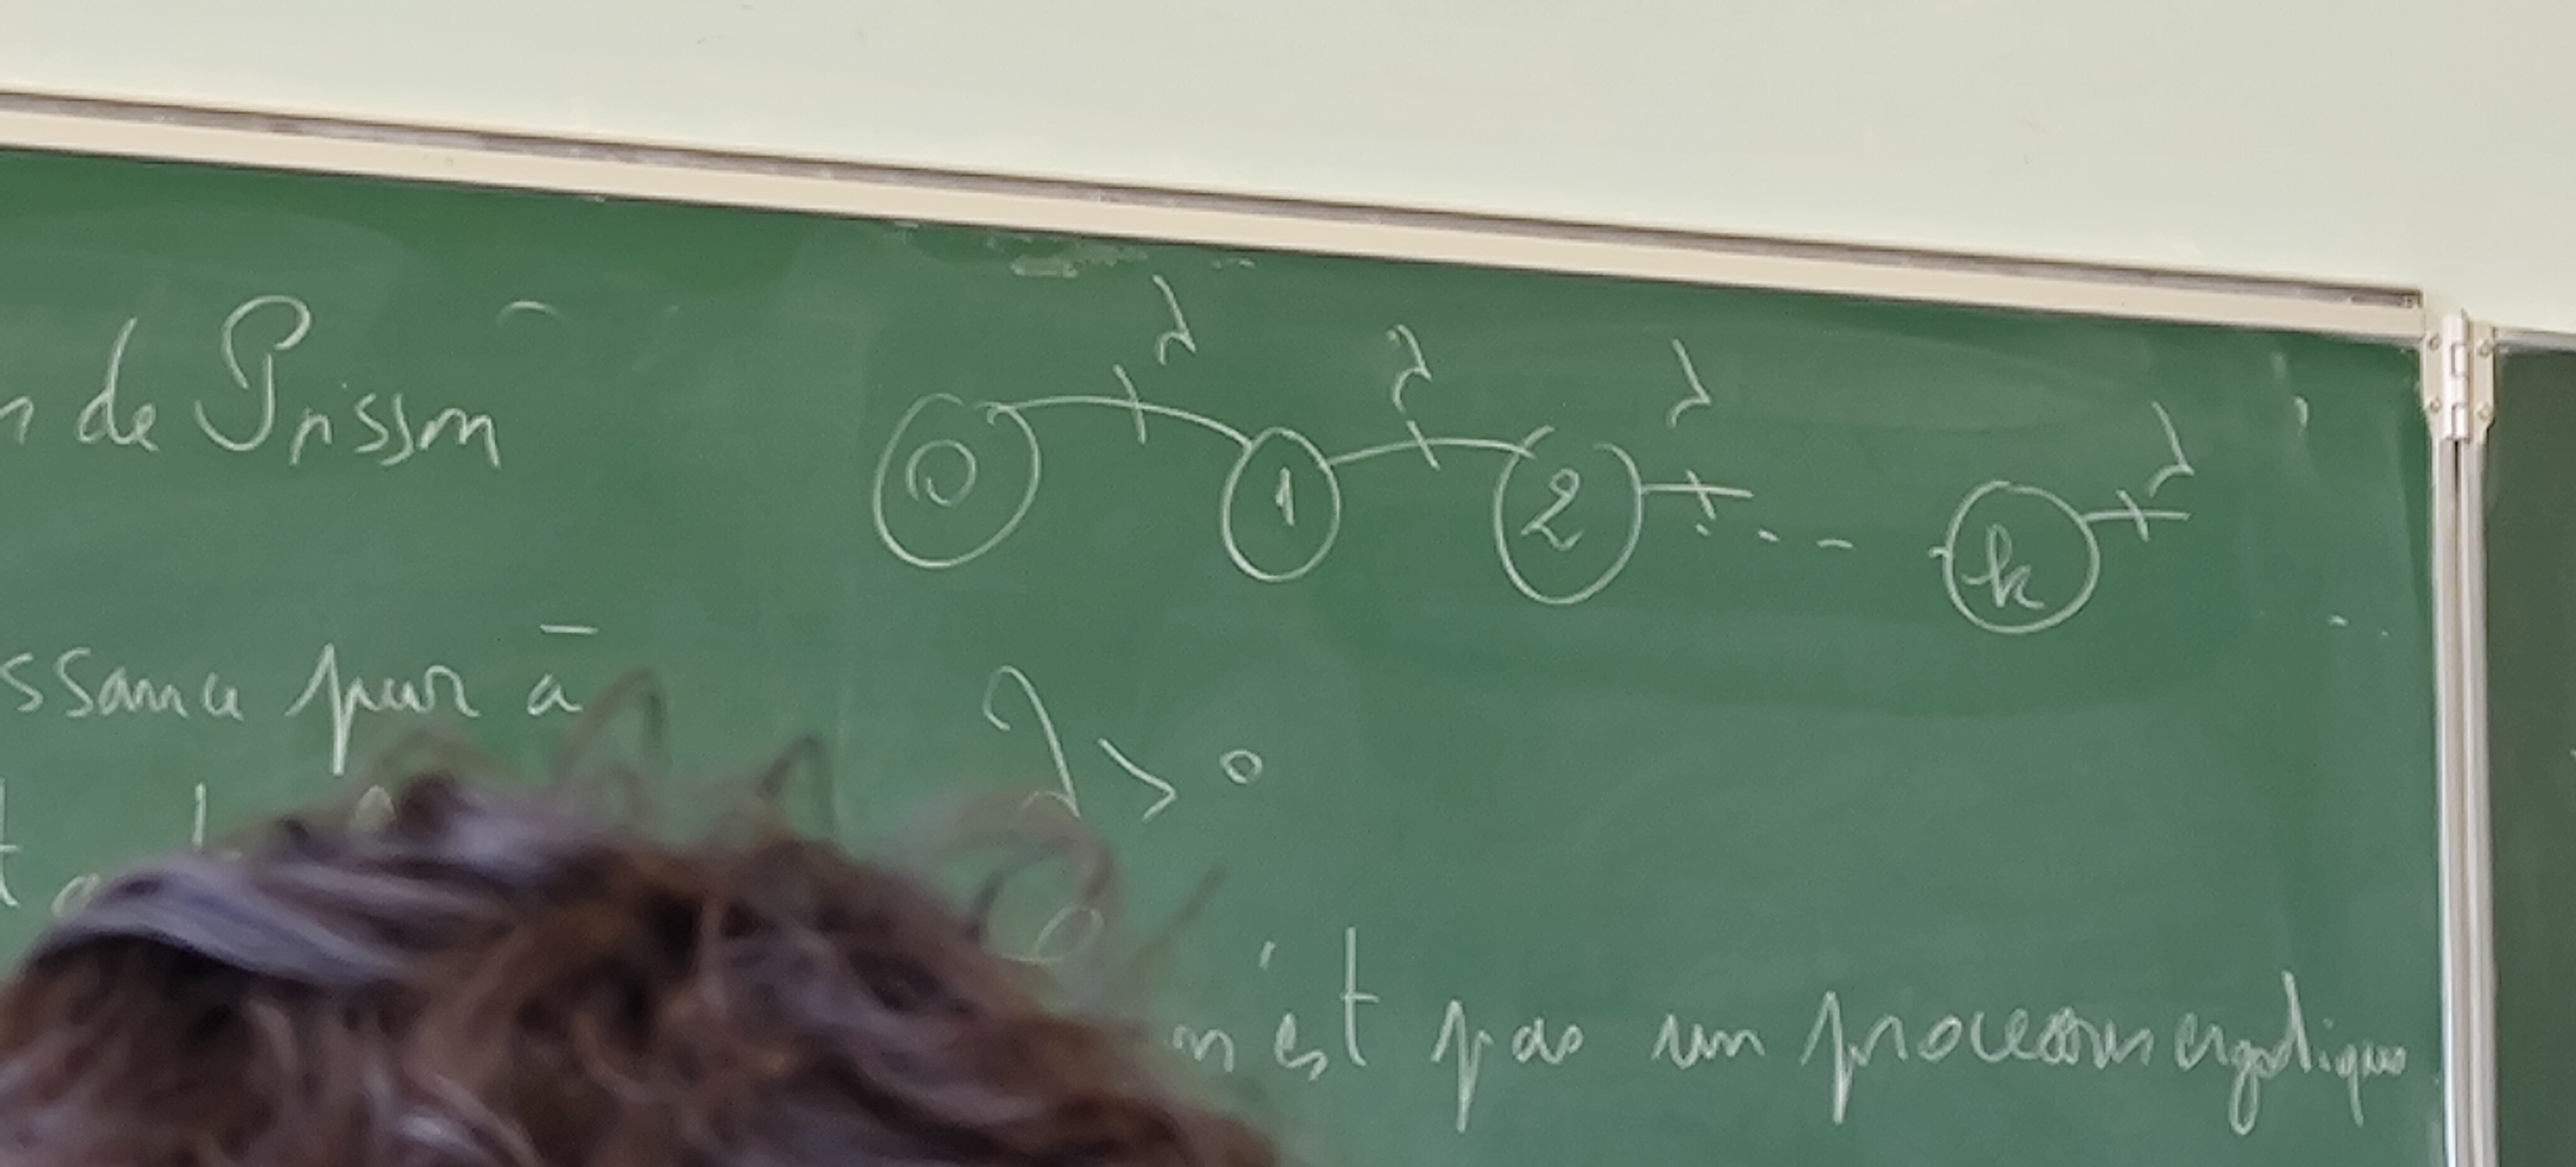 de Poisson
λ λ λ λ
0 1 2 ... k ...
ssance pur à
λ > 0
n'est pas un processus ergodique